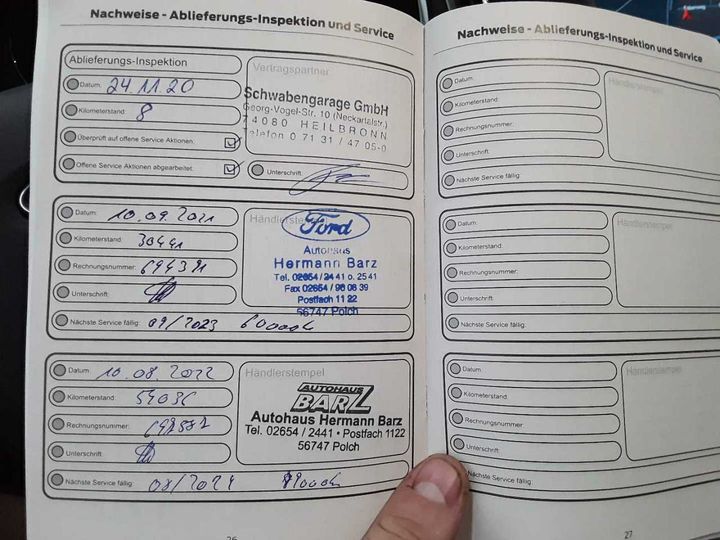 Nachweise - Ablieferungs-Inspektion und Service
Ablieferungs-Inspektion
Datum: 24.11.20
Kilometerstand: 8
Überprüft auf offene Service Aktionen:
Offene Service Aktionen abgearbeitet:
Vertragspartner
Schwabengarage GmbH
Georg-Vogel-Str. 10 (Neckartalstr.)
74080 HEILBRONN
Telefon 0 71 31 / 47 05-0
Unterschrift:
Datum: 10.09.2021
Kilometerstand: 30441
Rechnungsnummer: 694391
Unterschrift:
Nächste Service fällig: 09/2023 60000k
Ford
Autohaus
Hermann Barz
Tel. 02654 / 2441 o. 2541
Fax 02654 / 96 08 39
Postfach 11 22
56747 Polch
Datum: 10.08.2022
Kilometerstand:
Rechnungsnummer:
Unterschrift:
Nächste Service fällig: 08/2024
Händlerstempel
AUTOHAUS
BARZ
Autohaus Hermann Barz
Tel. 02654 / 2441 • Postfach 1122
56747 Polch
26
Nachweise - Ablieferungs-Inspektion und Service
Datum:
Kilometerstand:
Rechnungsnummer:
Unterschrift:
Nächste Service fällig:
Datum:
Kilometerstand:
Rechnungsnummer:
Unterschrift:
Nächste Service fällig:
Händlerstempel
Datum:
Kilometerstand:
Rechnungsnummer:
Unterschrift:
Nächste Service fällig:
Händlerstempel
27